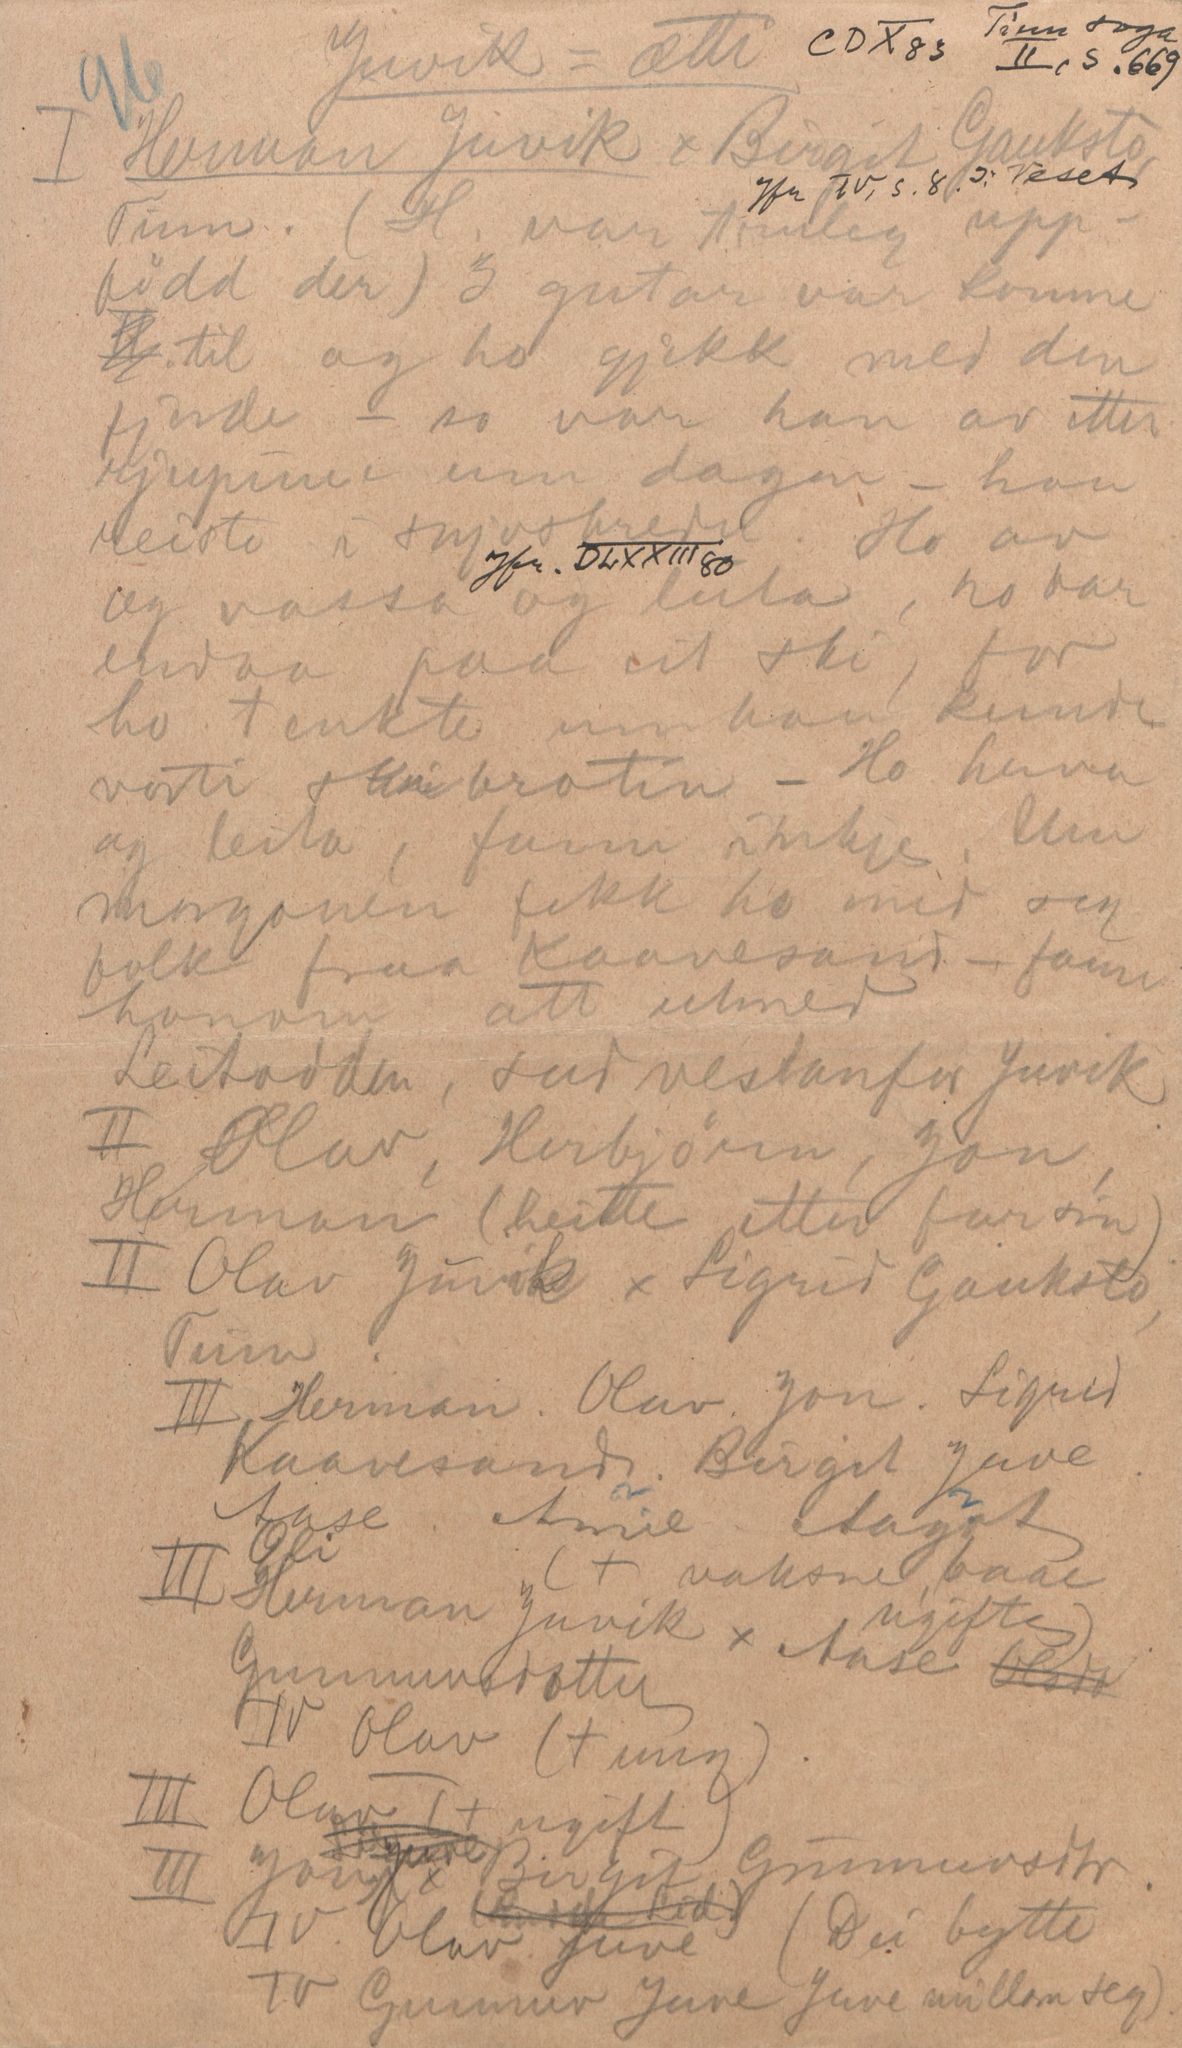 96
Juvik = ætti
CDX 83 Tinn soga
II, s. 669
I Herman Juvik x Birgit Gauksto,
Jfr IV, s. 8. J: Veset
Tinn. (H. var truleg upp-
född der) 3 gutar var komne
til og ho gjekk med den
fjorde – so var han av etter
rjupune um dagen – han
reiste i snjoskreda. Ho av
Jfr. DLXXIII 80
og vassa og leita, ho var
endaa paa eit ski, for
ho tenkte um han kunde
vorti skibrotin – Ho
og leita, fann inkje. Um
morgonen fekk ho med seg
folk fraa Kaavesand – fann
honom att utmed
Leitodden, sud vestanfor Juvik
II Olav, Herbjörn, Jon,
Herman (heitte etter far sin)
II Olav Juvik x Sigrid Gauksto,
Tinn.
III Herman. Olav. Jon. Sigrid
Kaavesand. Birgit Juve.
Aase. Aagot
Oli
(+ vaksne, baae
ugifte)
III Herman Juvik x Aase Olsdo
Gunnuvsdotter
IV Olav (+ ung).
III Olav (+ ugift)
III Jon x Birgit Gunnuvsdtr.
IV Olav Juve (Dei bytte
IV Gunnuv Juve Juve millom seg).